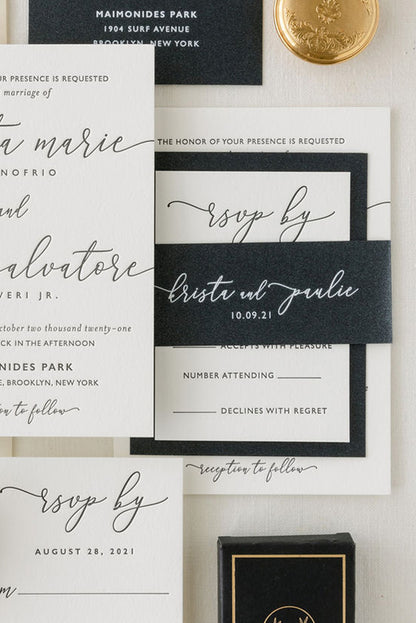 MAIMONIDES PARK
1904 SURF AVENUE
BROOKLYN, NEW YORK
UR PRESENCE IS REQUESTED
marriage of
a marie
NOFRIO
and
salvatore
VERI JR.
october two thousand twenty-one
CK IN THE AFTERNOON
NIDES PARK
E, BROOKLYN, NEW YORK
n to follow
THE HONOR OF YOUR PRESENCE IS REQUESTED
rsvp by
krista and paulie
10.09.21
ACCEPTS WITH PLEASURE
NUMBER ATTENDING
DECLINES WITH REGRET
reception to follow
rsvp by
AUGUST 28, 2021
m